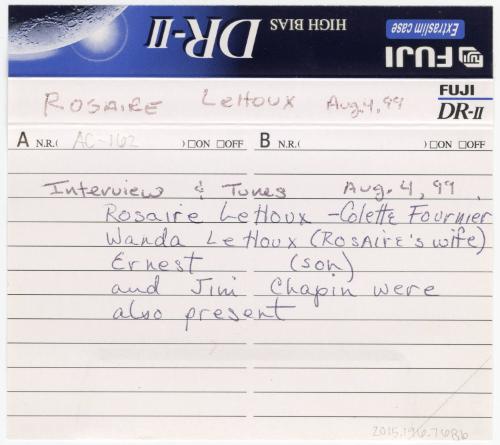 FUJI
Extraslim case
DR-II
HIGH BIAS
Rosaire LeHoux Aug.4,99
FUJI
DR-II
A N.R.( AC-162 ) □ON □OFF B N.R.( ) □ON □OFF
Interview & Tunes Aug. 4, 99.
Rosaire LeHoux - Colette Fournier
Wanda LeHoux (Rosaire's wife)
Ernest (son)
and Jim Chapin were
also present
2015.196.768b